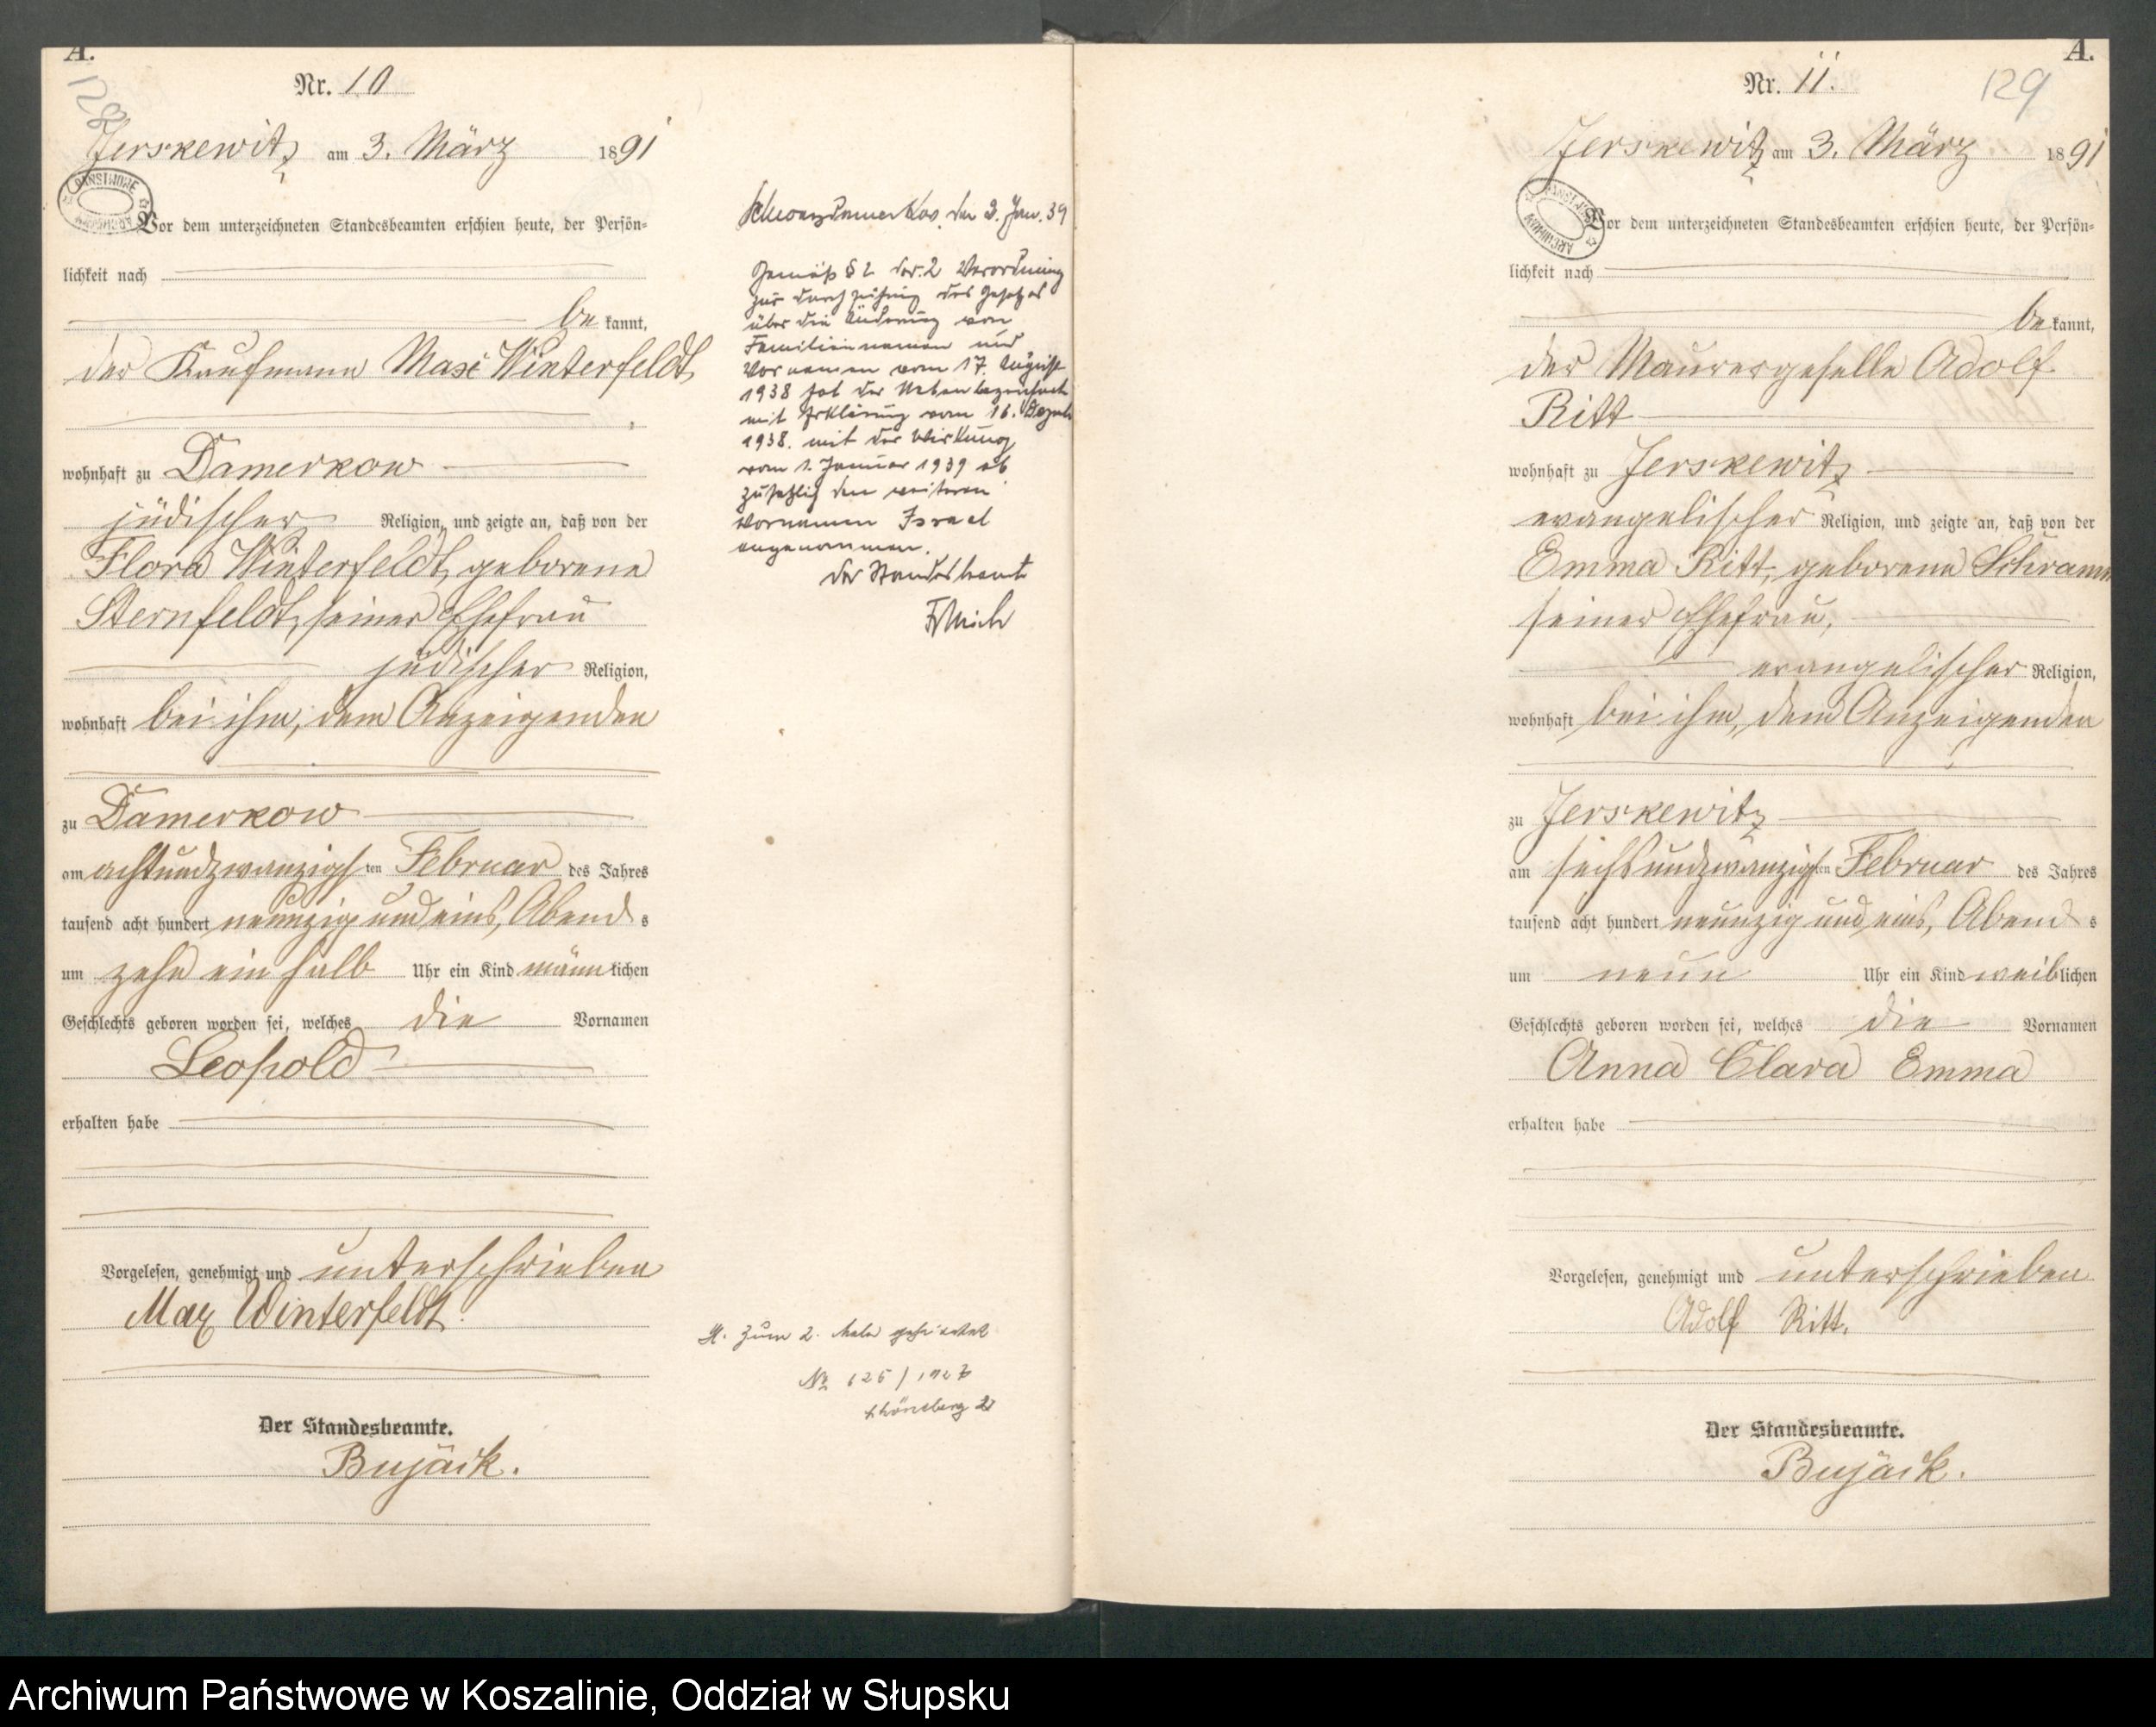 A.
128
Nr. 10
Jerskewitz am 3. März 1891
Vor dem unterzeichneten Standesbeamten erschien heute, der Persön=
lichkeit nach
be kannt,
der Kaufmann Max Winterfeldt,
wohnhaft zu Damerkow
jüdischer Religion, und zeigte an, daß von der
Flora Winterfeldt, geborene
Sternfeldt, seiner Ehefrau
jüdischer Religion,
wohnhaft bei ihm, dem Anzeigenden
zu Damerkow
am achtundzwanzigsten Februar des Jahres
tausend acht hundert neunzig und eins, Abends
um zehn ein halb Uhr ein Kind männlichen
Geschlechts geboren worden sei, welches die Vornamen
Leopold
erhalten habe
Vorgelesen, genehmigt und unterschrieben
Max Winterfeldt.
Der Standesbeamte.
Bujack.
den 3. Jan. 39
Gemäß § 2 der 2 Verordnung
zur Durchführung des Gesetzes
über die Änderung von
Familiennamen und
Vornamen vom 17. August
1938 hat der Nebenbezeichnete
mit Erklärung vom 16. Dezemb
1938. mit der Wirkung
vom 1. Januar 1939 ab
zusätzlich den weiteren
Vornamen Israel
angenommen.
Der Standesbeamte
H. Zum 2. Male geheiratet
No 625/192
Schöneberg 2
A.
129
Nr. 11.
Jerskewitz am 3. März 1891
Vor dem unterzeichneten Standesbeamten erschien heute, der Persön=
lichkeit nach
be kannt,
der Maurergeselle Adolf
Ritt
wohnhaft zu Jerskewitz
evangelischer Religion, und zeigte an, daß von der
Emma Ritt, geborene Schramm
seiner Ehefrau,
evangelischer Religion,
wohnhaft bei ihm, dem Anzeigenden
zu Jerskewitz
am sechsundzwanzigsten Februar des Jahres
tausend acht hundert neunzig und eins, Abends
um neun Uhr ein Kind weiblichen
Geschlechts geboren worden sei, welches die Vornamen
Anna Clara Emma
erhalten habe
Vorgelesen, genehmigt und unterschrieben
Adolf Ritt.
Der Standesbeamte.
Bujack.
Archiwum Państwowe w Koszalinie, Oddział w Słupsku